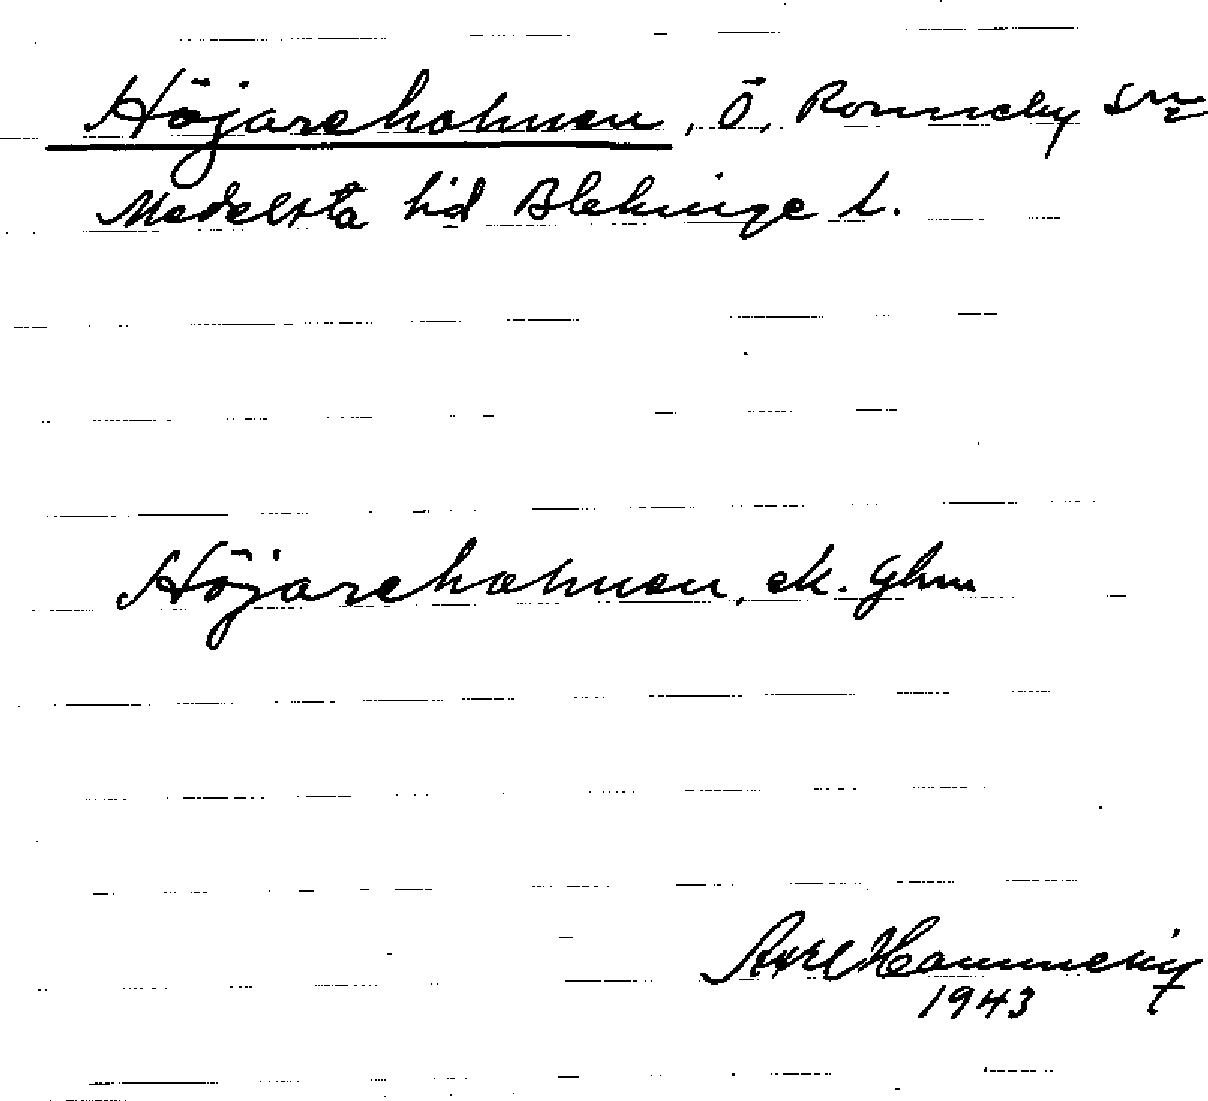 Höjareholmen, Ö. Ronneby sn
Medelsta hd Blekinge l.
Höjareholmen, ek. Ghm
Axel
1943